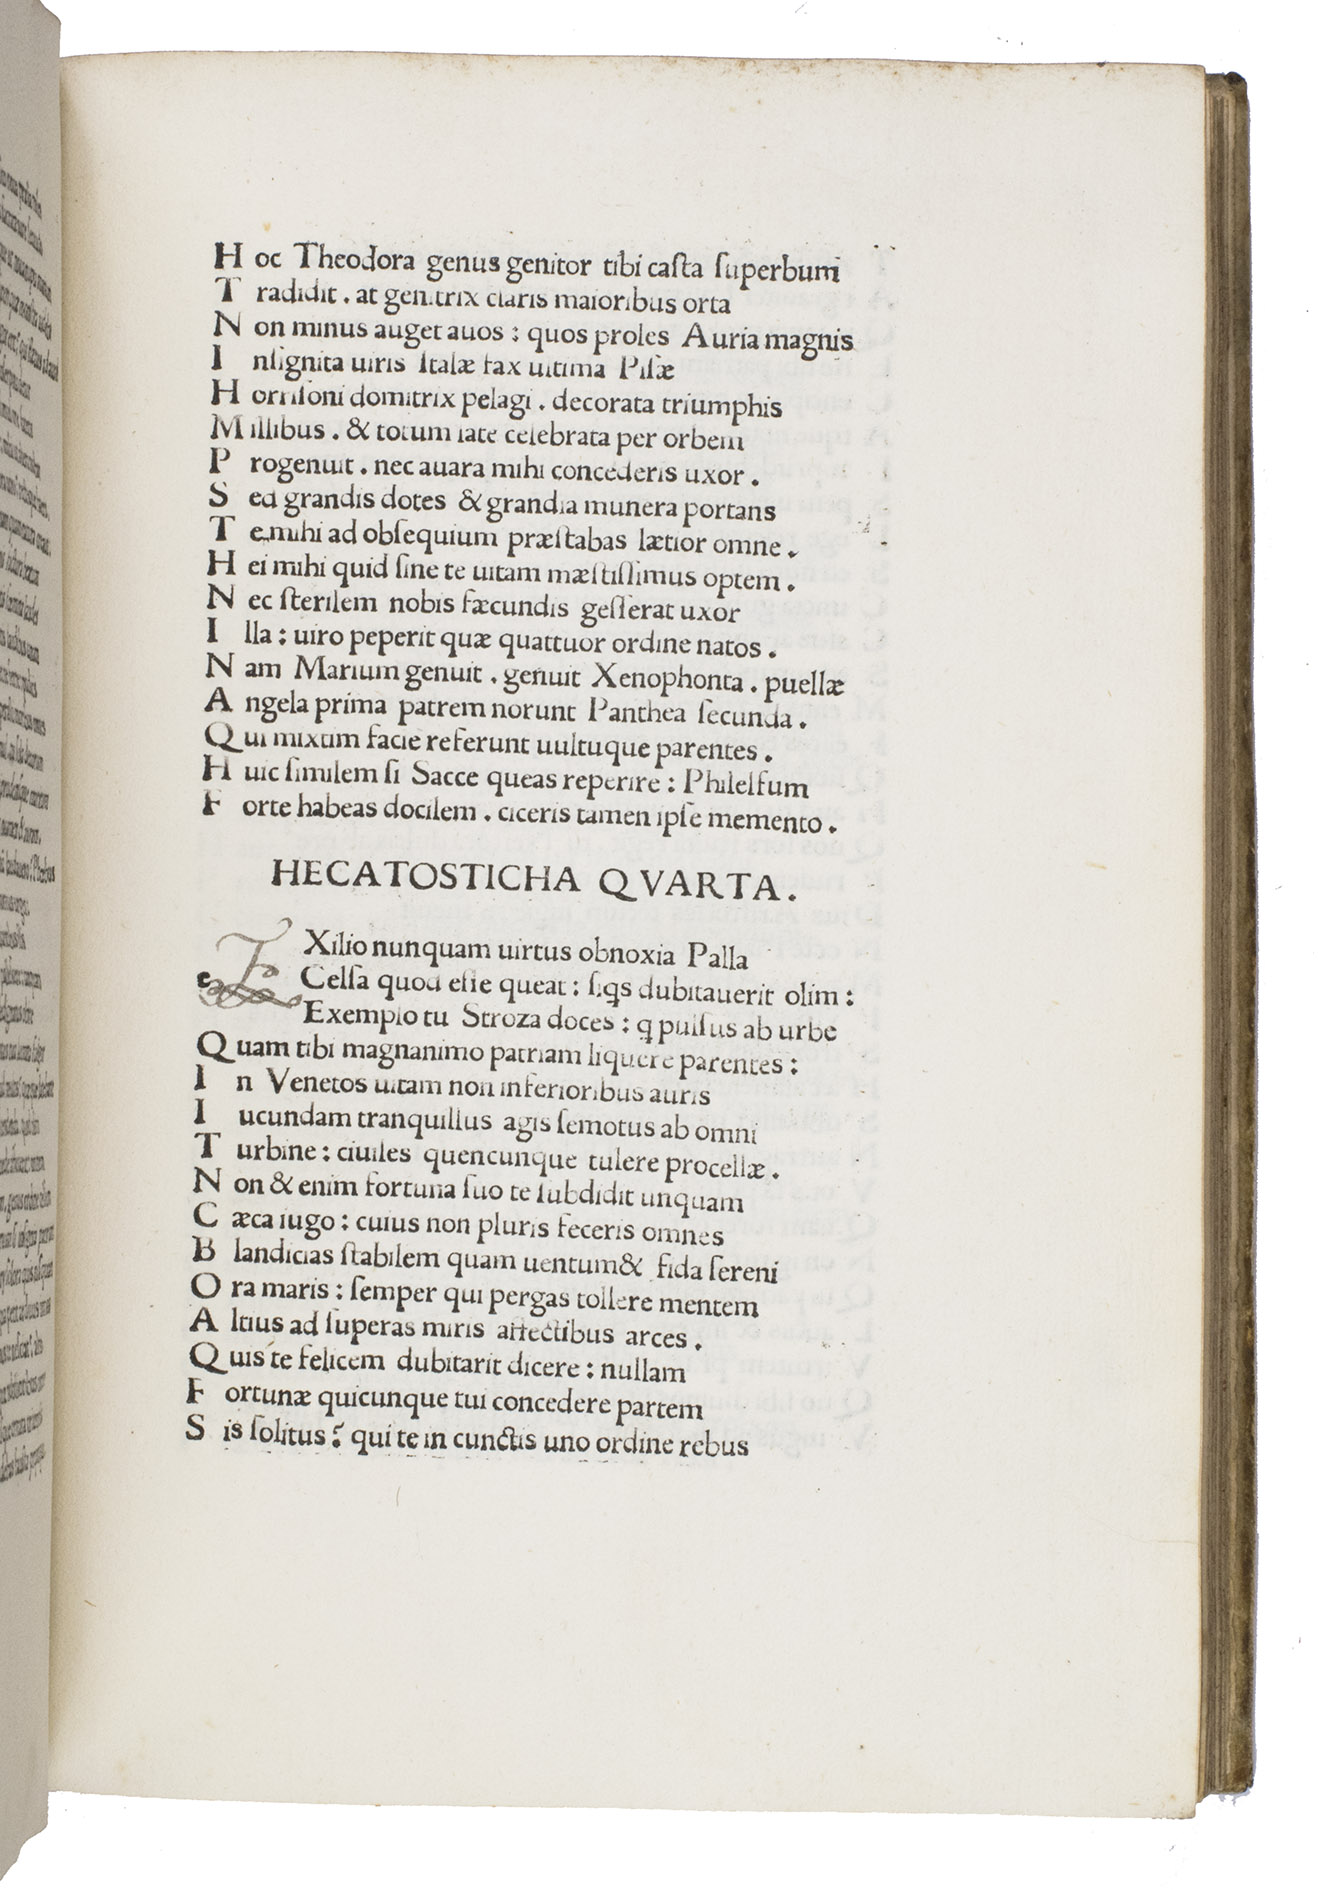 Hoc Theodora genus genitor tibi caſta ſuperbum
Tradidit . at genitrix claris maioribus orta
Non minus auget auos : quos proles Auria magnis
Inſignita uiris Italæ fax ultima Piſæ
Horriſoni domitrix pelagi . decorata triumphis
Millibus . & totum late celebrata per orbem
Progenuit . nec auara mihi concederis uxor .
Sed grandis dotes & grandia munera portans
Te mihi ad obſequium præſtabas lætior omne .
Hei mihi quid ſine te uitam mæſtiſſimus optem .
Nec ſterilem nobis fæcundis geſſerat uxor
Illa : uiro peperit quæ quattuor ordine natos .
Nam Marium genuit . genuit Xenophonta . puellæ
Angela prima patrem norunt Panthea ſecunda .
Qui mixtim facie referunt uultuque parentes .
Huic ſimilem ſi Sacce queas reperire : Philelfum
Forte habeas docilem . ciceris tamen ipſe memento .
HECATOSTICHA QVARTA .
EXilio nunquam uirtus obnoxia Palla
Celſa quod eſſe queat : ſiqs dubitauerit olim :
Exemplo tu Stroza doces : q pulſus ab urbe
Quam tibi magnanimo patriam liquere parentes :
In Venetos uitam non inferioribus auris
Iucundam tranquillus agis ſemotus ab omni
Turbine : ciuiles quencunque tulere procellæ .
Non & enim fortuna ſuo te ſubdidit unquam
Cæca iugo : cuius non pluris feceris omnes
Blandicias ſtabilem quam uentum & fida ſereni
Ora maris : ſemper qui pergas tollere mentem
Altius ad ſuperas miris affectibus arces .
Quis te felicem dubitarit dicere : nullam
Fortunæ quicunque tui concedere partem
Sis ſolitus ? qui te in cunctis uno ordine rebus